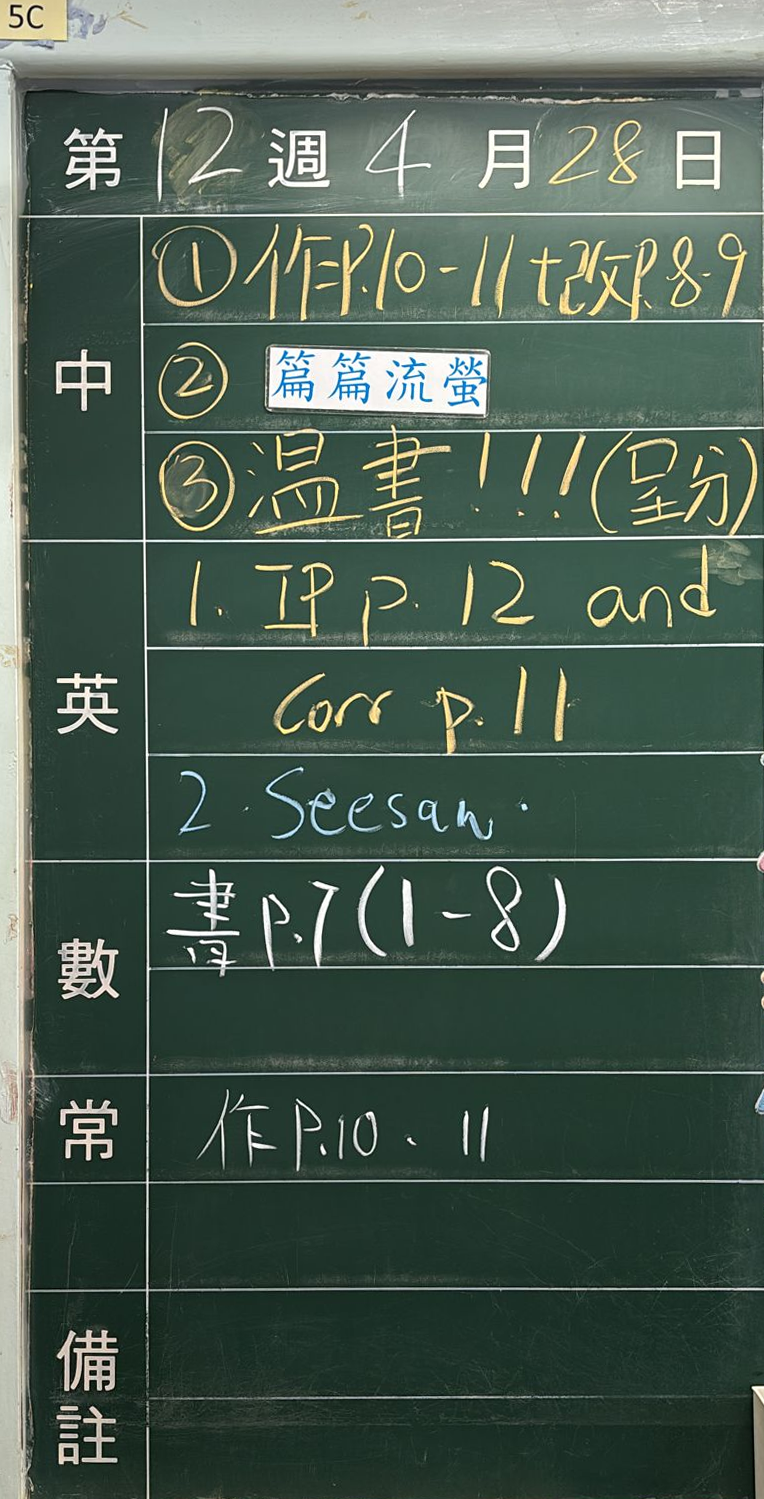 5C
第12週4月28日
中
①作P.10-11+改P.8-9
②篇篇流螢
③温書!!!(呈分)
英
1. IP p. 12 and
Corr p. 11
2. Seesaw.
數
書p.7(1-8)
常
作P.10、11
備註